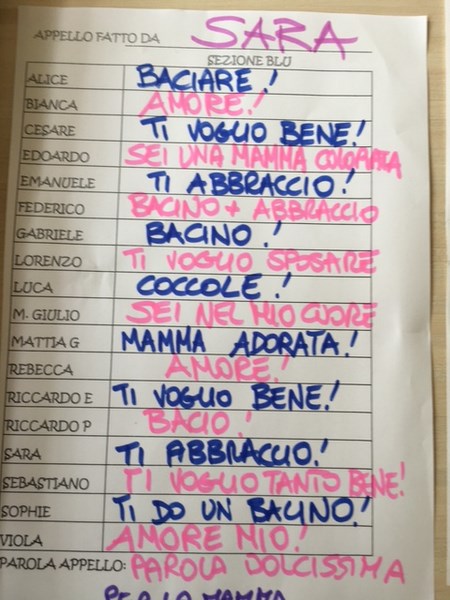 APPELLO FATTO DA SARA
SEZIONE BLU
ALICE BACIARE!
BIANCA AMORE!
CESARE TI VOGLIO BENE!
EDOARDO SEI UNA MAMMA COLORATA
EMANUELE TI ABBRACCIO!
FEDERICO BACINO + ABBRACCIO
GABRIELE BACINO!
LORENZO TI VOGLIO SPOSARE
LUCA COCCOLE!
M. GIULIO SEI NEL MIO CUORE
MATTIA G MAMMA ADORATA!
REBECCA AMORE!
RICCARDO E TI VOGLIO BENE!
RICCARDO P BACIO!
SARA TI ABBRACCIO!
SEBASTIANO TI VOGLIO TANTO BENE!
SOPHIE TI DO UN BACINO!
VIOLA AMORE MIO!
PAROLA APPELLO: PAROLA DOLCISSIMA
PER LA MAMMA